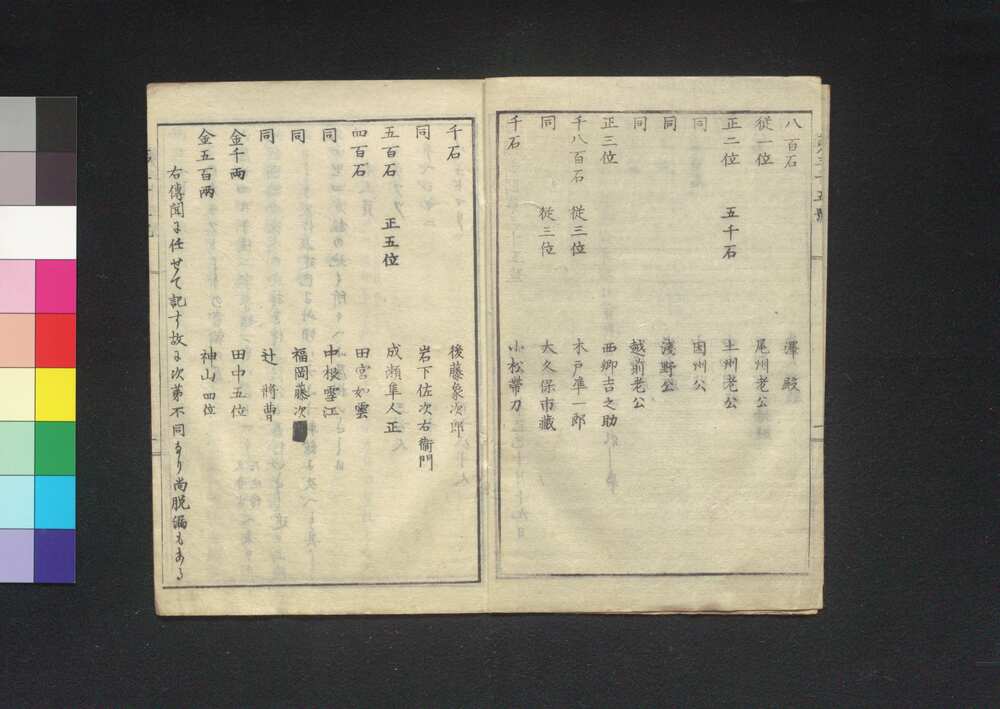 八百石 澤殿
従一位 尾州老公
正二位 五千石 土州老公
同 因州公
同 淺野公
同 越前老公
正三位 西郷吉之助
千八百石 従三位 木戸準一郎
同 従三位 大久保市藏
千石 小松帯刀
千石 後藤象次郎
同 岩下佐次右衞門
五百石 正五位 成瀬隼人正
四百石 田宮如雲
同 中根雪江
同 福岡藤次
同 辻将曹
金千両 田中五位
金五百両 神山四位
右傳聞に任せて記す故に次第不同なり尚脱漏もある